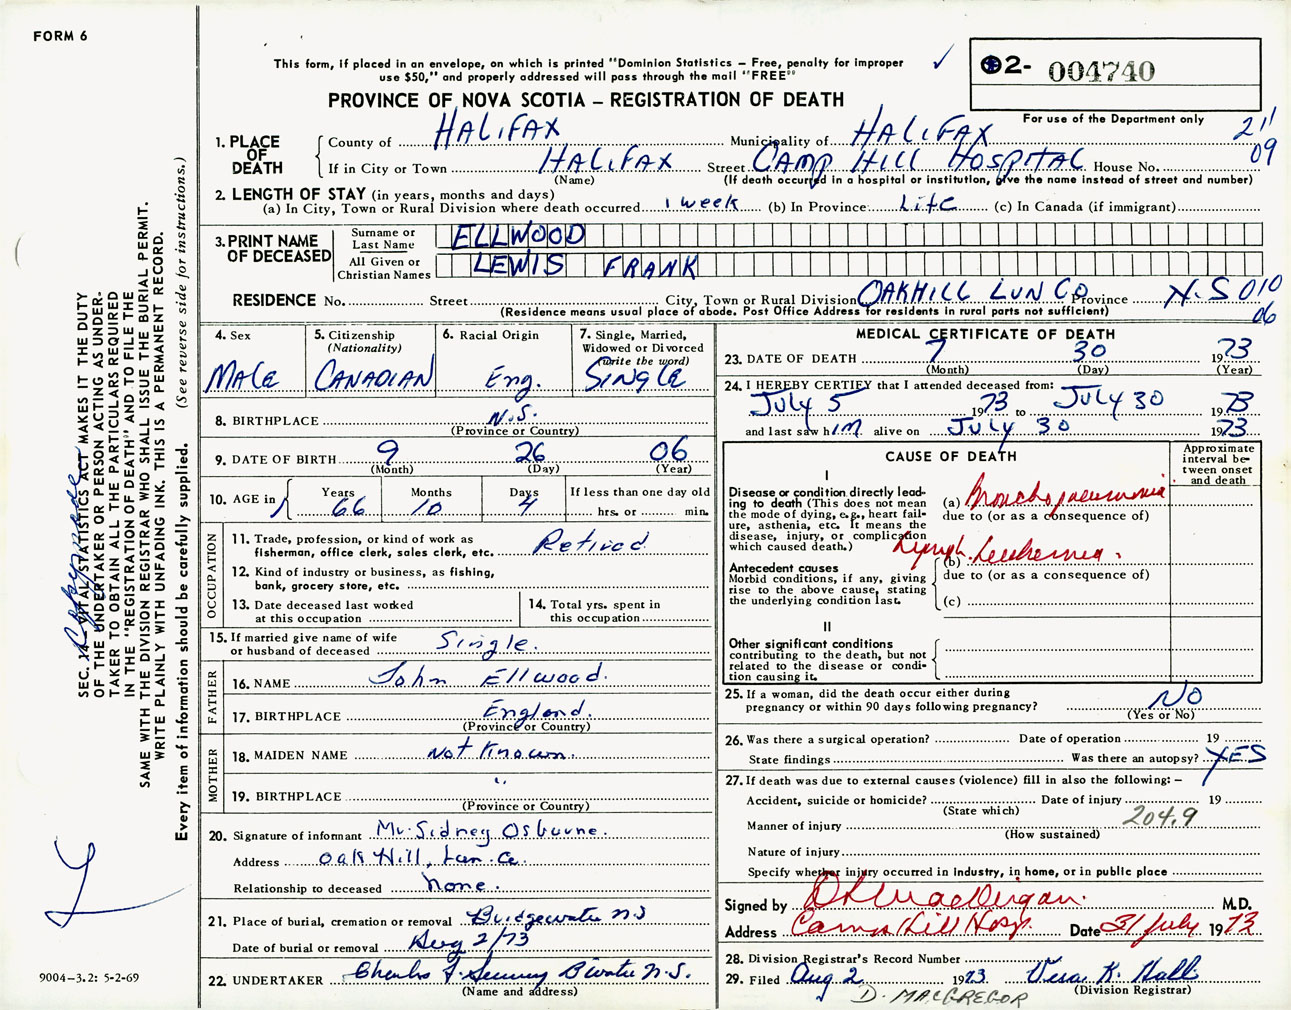 FORM 6
This form, if placed in an envelope, on which is printed "Dominion Statistics – Free, penalty for improper
use $50," and properly addressed will pass through the mail "FREE"
PROVINCE OF NOVA SCOTIA – REGISTRATION OF DEATH
02- 004740
For use of the Department only
211
09
1. PLACE OF DEATH
County of HALIFAX Municipality of HALIFAX
If in City or Town HALIFAX Street CAMP HILL HOSPITAL House No.
(Name) (If death occurred in a hospital or institution, give the name instead of street and number)
2. LENGTH OF STAY (in years, months and days)
(a) In City, Town or Rural Division where death occurred 1 week (b) In Province Life (c) In Canada (if immigrant)
3. PRINT NAME OF DECEASED
Surname or Last Name ELLWOOD
All Given or Christian Names LEWIS FRANK
RESIDENCE No. Street City, Town or Rural Division OAKHILL LUN CO Province N.S 010
06
(Residence means usual place of abode. Post Office Address for residents in rural parts not sufficient)
4. Sex MALE
5. Citizenship (Nationality) CANADIAN
6. Racial Origin Eng.
7. Single, Married, Widowed or Divorced (write the word) SINGLE
8. BIRTHPLACE N.S.
(Province or Country)
9. DATE OF BIRTH 9 26 06
(Month) (Day) (Year)
10. AGE in Years 66 Months 10 Days 4 If less than one day old
hrs. or min.
OCCUPATION
11. Trade, profession, or kind of work as
fisherman, office clerk, sales clerk, etc. Retired
12. Kind of industry or business, as fishing,
bank, grocery store, etc.
13. Date deceased last worked
at this occupation
14. Total yrs. spent in
this occupation
15. If married give name of wife
or husband of deceased Single.
FATHER
16. NAME John Ellwood.
17. BIRTHPLACE England.
(Province or Country)
MOTHER
18. MAIDEN NAME Not Known.
19. BIRTHPLACE "
(Province or Country)
20. Signature of informant Mr. Sidney Osburne.
Address Oak Hill, Lun. Co.
Relationship to deceased None.
21. Place of burial, cremation or removal Bridgewater N.S
Date of burial or removal Aug 2/73
22. UNDERTAKER Charles B'water N.S.
(Name and address)
MEDICAL CERTIFICATE OF DEATH
23. DATE OF DEATH 7 30 1973
(Month) (Day) (Year)
24. I HEREBY CERTIFY that I attended deceased from:
July 5 1973 to July 30 1973
and last saw him alive on July 30 1973
CAUSE OF DEATH
Approximate interval between onset and death
I
Disease or condition directly lead-
ing to death (This does not mean
the mode of dying, e.g., heart fail-
ure, asthenia, etc. It means the
disease, injury, or complication
which caused death.)
(a) Bronchopneumonia
due to (or as a consequence of)
Antecedent causes
Morbid conditions, if any, giving
rise to the above cause, stating
the underlying condition last.
(b) Lymph. Leukemia.
due to (or as a consequence of)
(c)
II
Other significant conditions
contributing to the death, but not
related to the disease or condi-
tion causing it.
25. If a woman, did the death occur either during
pregnancy or within 90 days following pregnancy? NO
(Yes or No)
26. Was there a surgical operation? Date of operation 19
State findings Was there an autopsy? YES
27. If death was due to external causes (violence) fill in also the following: –
Accident, suicide or homicide? Date of injury 19
(State which)
Manner of injury 204.9
(How sustained)
Nature of injury
Specify whether injury occurred in industry, in home, or in public place
Signed by M.D.
Address Camp Hill Hosp. Date 31 July 1973
28. Division Registrar's Record Number
29. Filed Aug 2 1973 Vera K. Halls
(Division Registrar)
D. MACGREGOR
SEC. 14 VITAL STATISTICS ACT MAKES IT THE DUTY
OF THE UNDERTAKER OR PERSON ACTING AS UNDER-
TAKER TO OBTAIN ALL THE PARTICULARS REQUIRED
IN THE "REGISTRATION OF DEATH" AND TO FILE THE
SAME WITH THE DIVISION REGISTRAR WHO SHALL ISSUE THE BURIAL PERMIT.
WRITE PLAINLY WITH UNFADING INK. THIS IS A PERMANENT RECORD.
Every item of information should be carefully supplied. (See reverse side for instructions.)
9004-3.2: 5-2-69